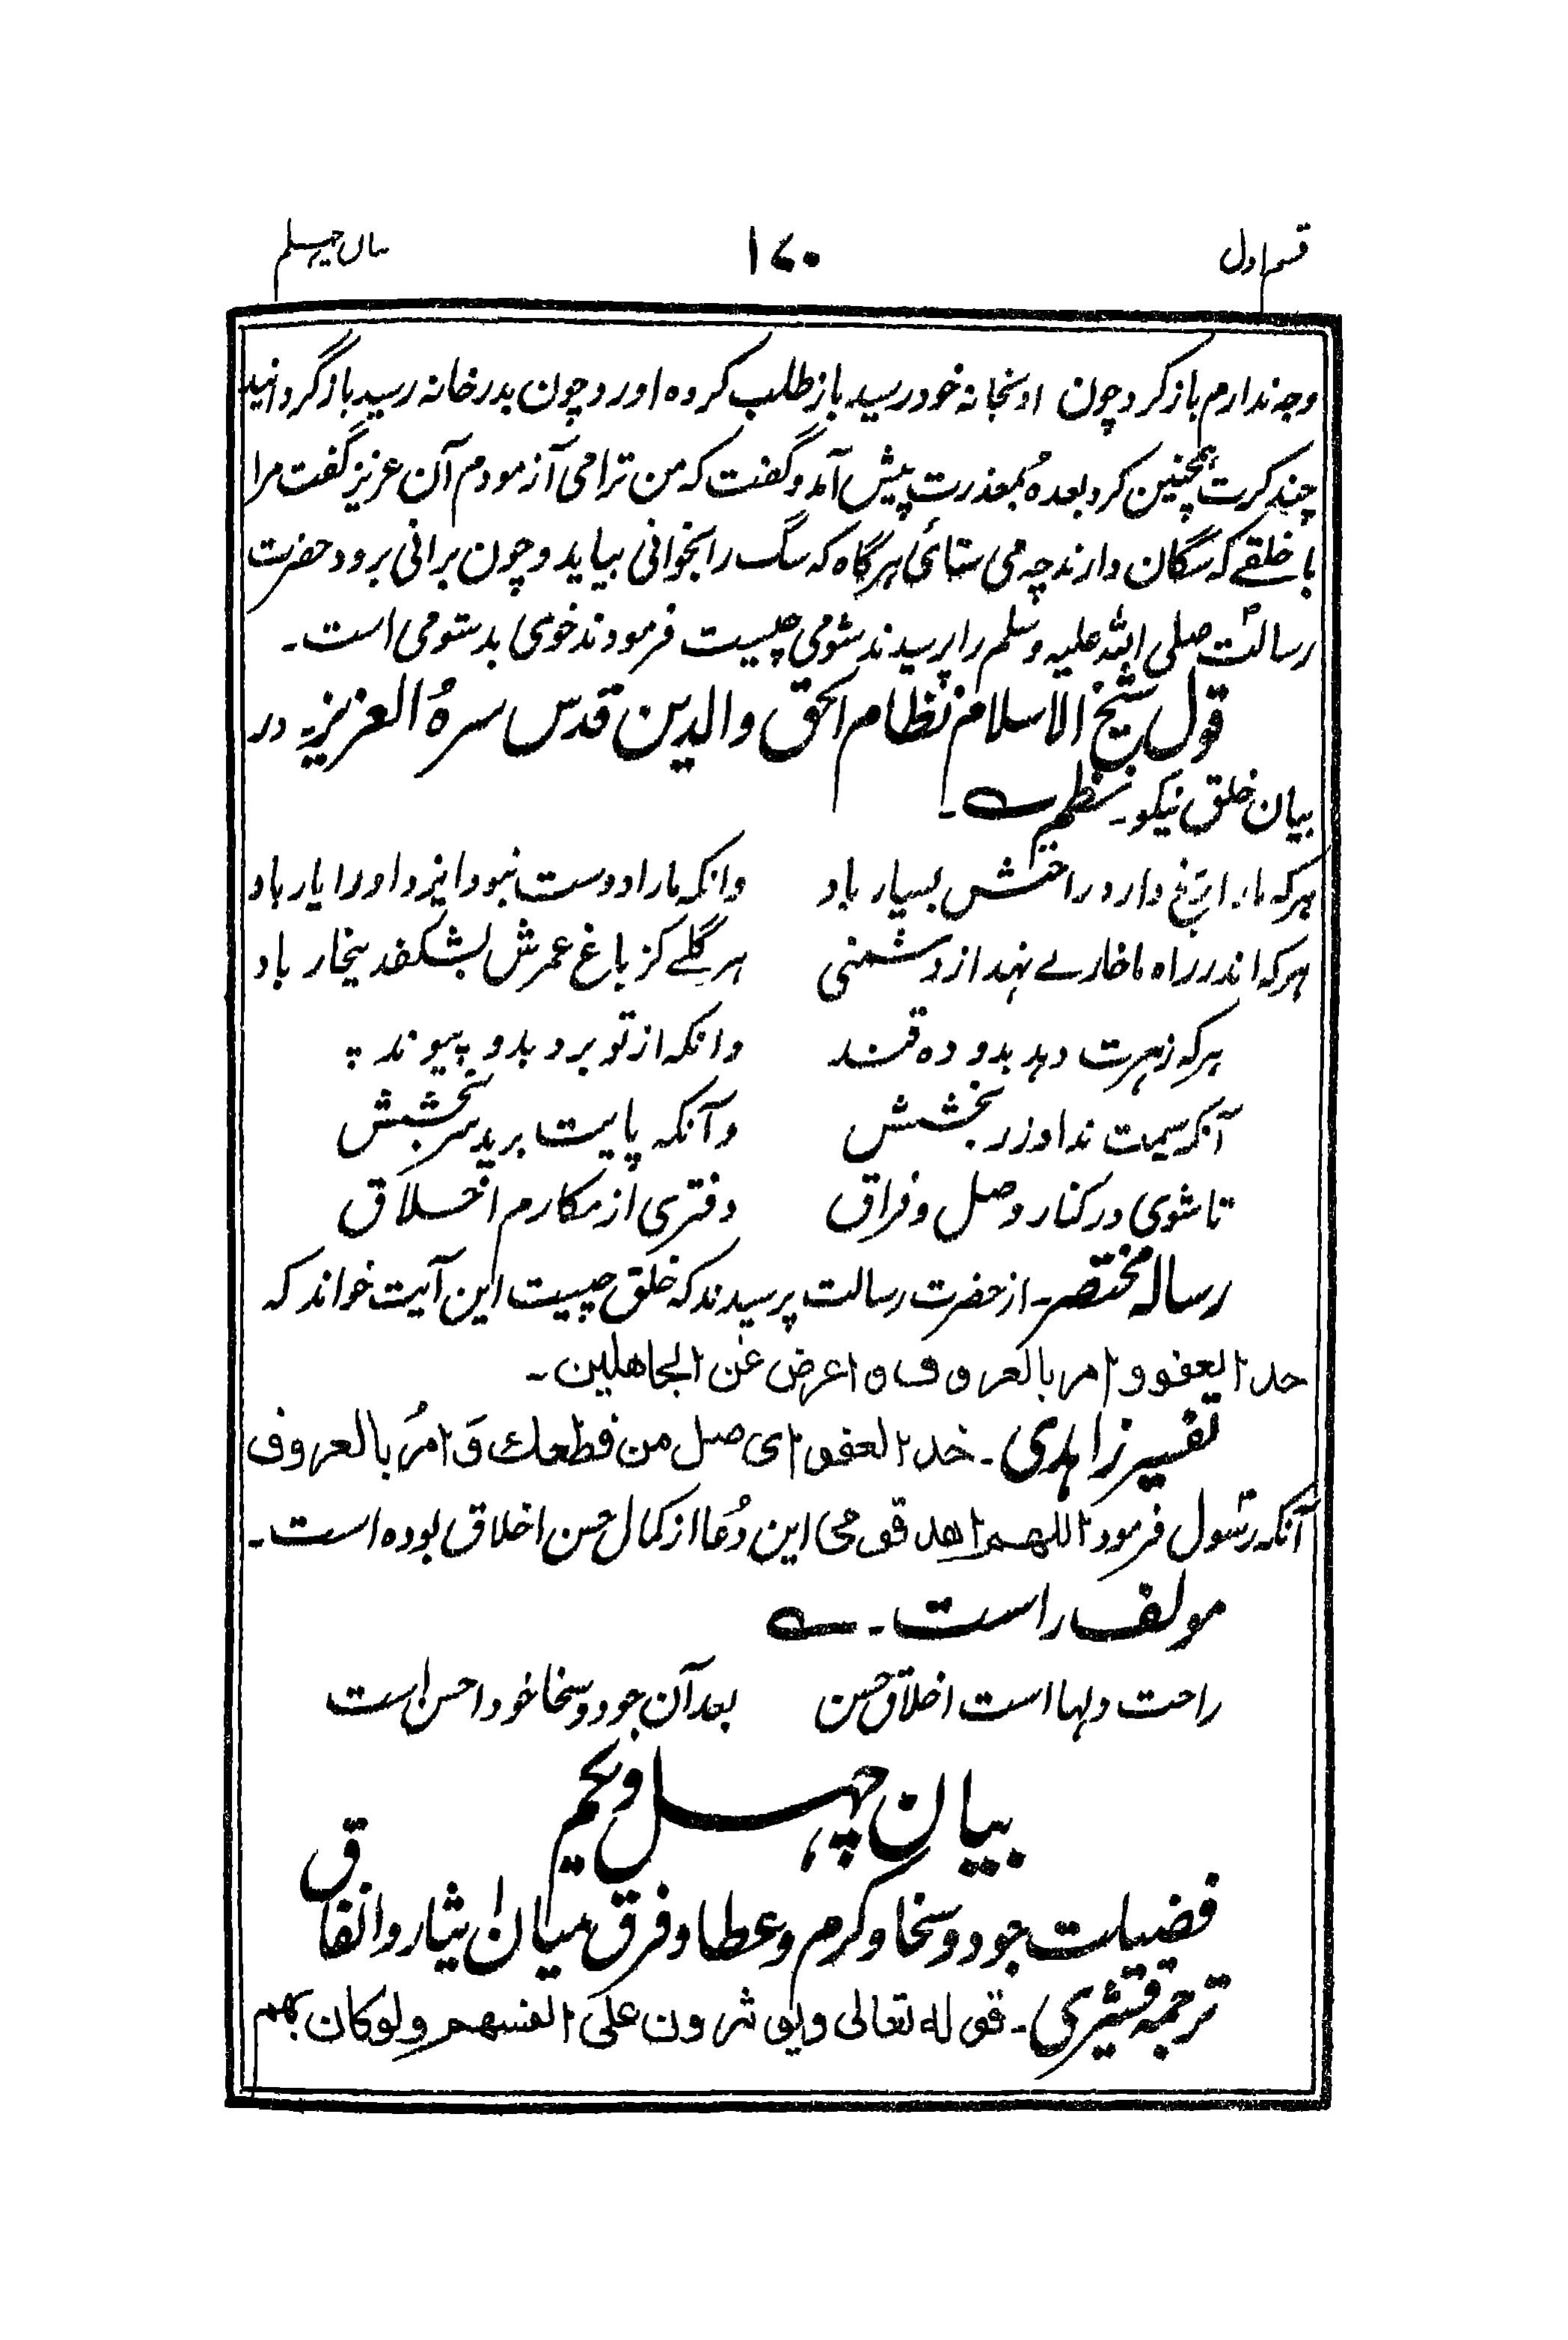 قسم اول ۱۷۰ بیان چہلم
وجہ ندارم باز کرد چون او بخانۂ خود رسید باز طلب کردہ اورد چون بدر خانہ رسید باز گردانید
چند کرت ہمچنین کرد بعدہ بمعذرت پیش آمد و گفت کہ من ترا می آزمودم آن عزیز گفت مرا
با خلقے کہ سگان دارند چہ می ستائی ہرگاہ کہ سگ را بخوانی بیاید و چون برانی برود حضرت
رسالتؐ صلی اللہ علیہ وسلم را پرسیدند شومی چیست فرمودند خوی بد شومی است۔
قول شیخ الاسلام نظام الحق والدین قدس سرہُ العزیز۔ در
بیان خلق نیکو۔ نظم ؎۔
ہرکہ مارا رنج دارد راحتش بسیار باد وانکہ مارا دوست نبود ایزد اورا یار باد
ہرکہ اندر راہ ما خارے نہد از دشمنی ہر گلے کز باغ عمرش بشکفد بیخار باد
ہرکہ زہرت دہد بدو دہ قند وانکہ از تو برد بدو پیوند ؞
آنکہ سیمت نداد زر بخشش وآنکہ پایت برید سر بخشش
تا شوی در کنار وصل و فراق دفتری از مکارم اخلاق
رسالہ مختصر۔ از حضرت رسالت پرسیدند کہ خلق چیست این آیت خواند کہ
خذ العفو وامر بالعروف واعرض عن الجاھلین۔
تفسیر زاہدی۔ خذ العفو ای صل من قطعك وَامُر بالعروف
آنکہ رسول فرمود اللهم اهد قومی این دُعا از کمال حسن اخلاق بودہ است۔
مولف راست۔ ؎
راحت دلہا است اخلاق حسن بعد آن جود و سخا خود احسن است
بیان چہل ویکم
فضیلت جود و سخا و کرم و عطا و فرق میان ایثار وانفاق
ترجمہ قشیری۔ قوله تعالی ویوثرون علی انفسهم ولوکان بهم